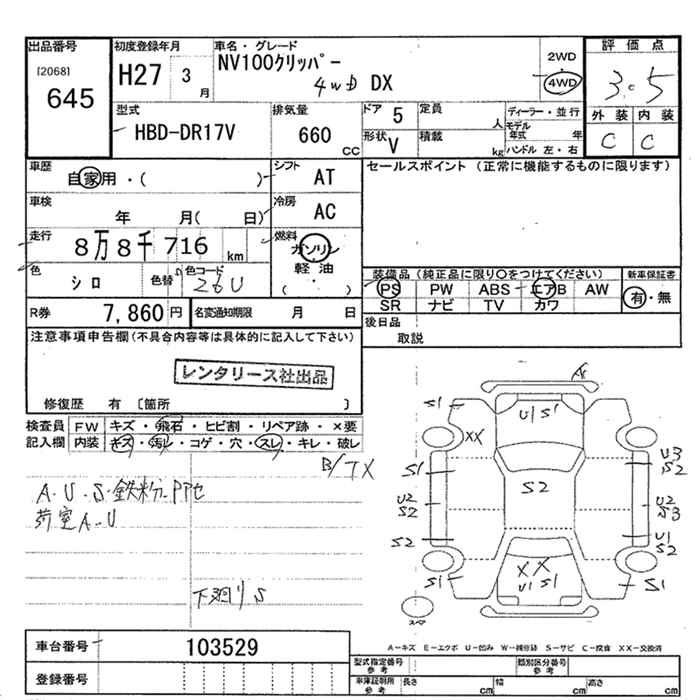 出品番号 初度登録年月 車名・グレード 評価点
[2068] H27 3月 NV100クリッパー 2WD
645 4WD DX 4WD 3.5
型式 排気量 ドア 5 定員 人 ディーラー・並行 外装 内装
HBD-DR17V 660 CC 形状 V 積載 kg モデル年式 年 C C
ハンドル 左・右
車歴 自家用・( ) シフト AT セールスポイント (正常に機能するものに限ります)
車検 年 月( 日) 冷房 AC
走行 8万8千716 km 燃料 ガソリン
軽油
( ・ )
色 シロ 色替 色コード 26U 装備品 (純正品に限り〇をつけてください) 新車保証書
PS PW ABS エアB AW 有・無
SR ナビ TV カワ
R券 7,860円 名変通知期限 月 日 後日品
取説
注意事項申告欄(不具合内容等は具体的に記入して下さい)
レンタリース社出品
修復歴 有 〔箇所 〕
検査員 FW キズ・飛石・ヒビ割・リペア跡・×要
記入欄 内装 キズ・汚レ・コゲ・穴・スレ・キレ・破レ
B/TX
A.U.S.鉄粉.PTセ
荷室A-U
下廻りS
A
S1 U1 S1 S1
XX
S1 U3
S2
S2
U2 U2
S2 S3
S2 U1
S2
XX
S1 U1 S1 S1
スペア
A-キズ E-エクボ U-凹み W-補修跡 S-サビ C-腐食 XX-交換済
車台番号 103529
登録番号
型式指定番号 参考 類別区分番号 参考
車庫証明用 参考 長さ cm 幅 cm 高さ cm